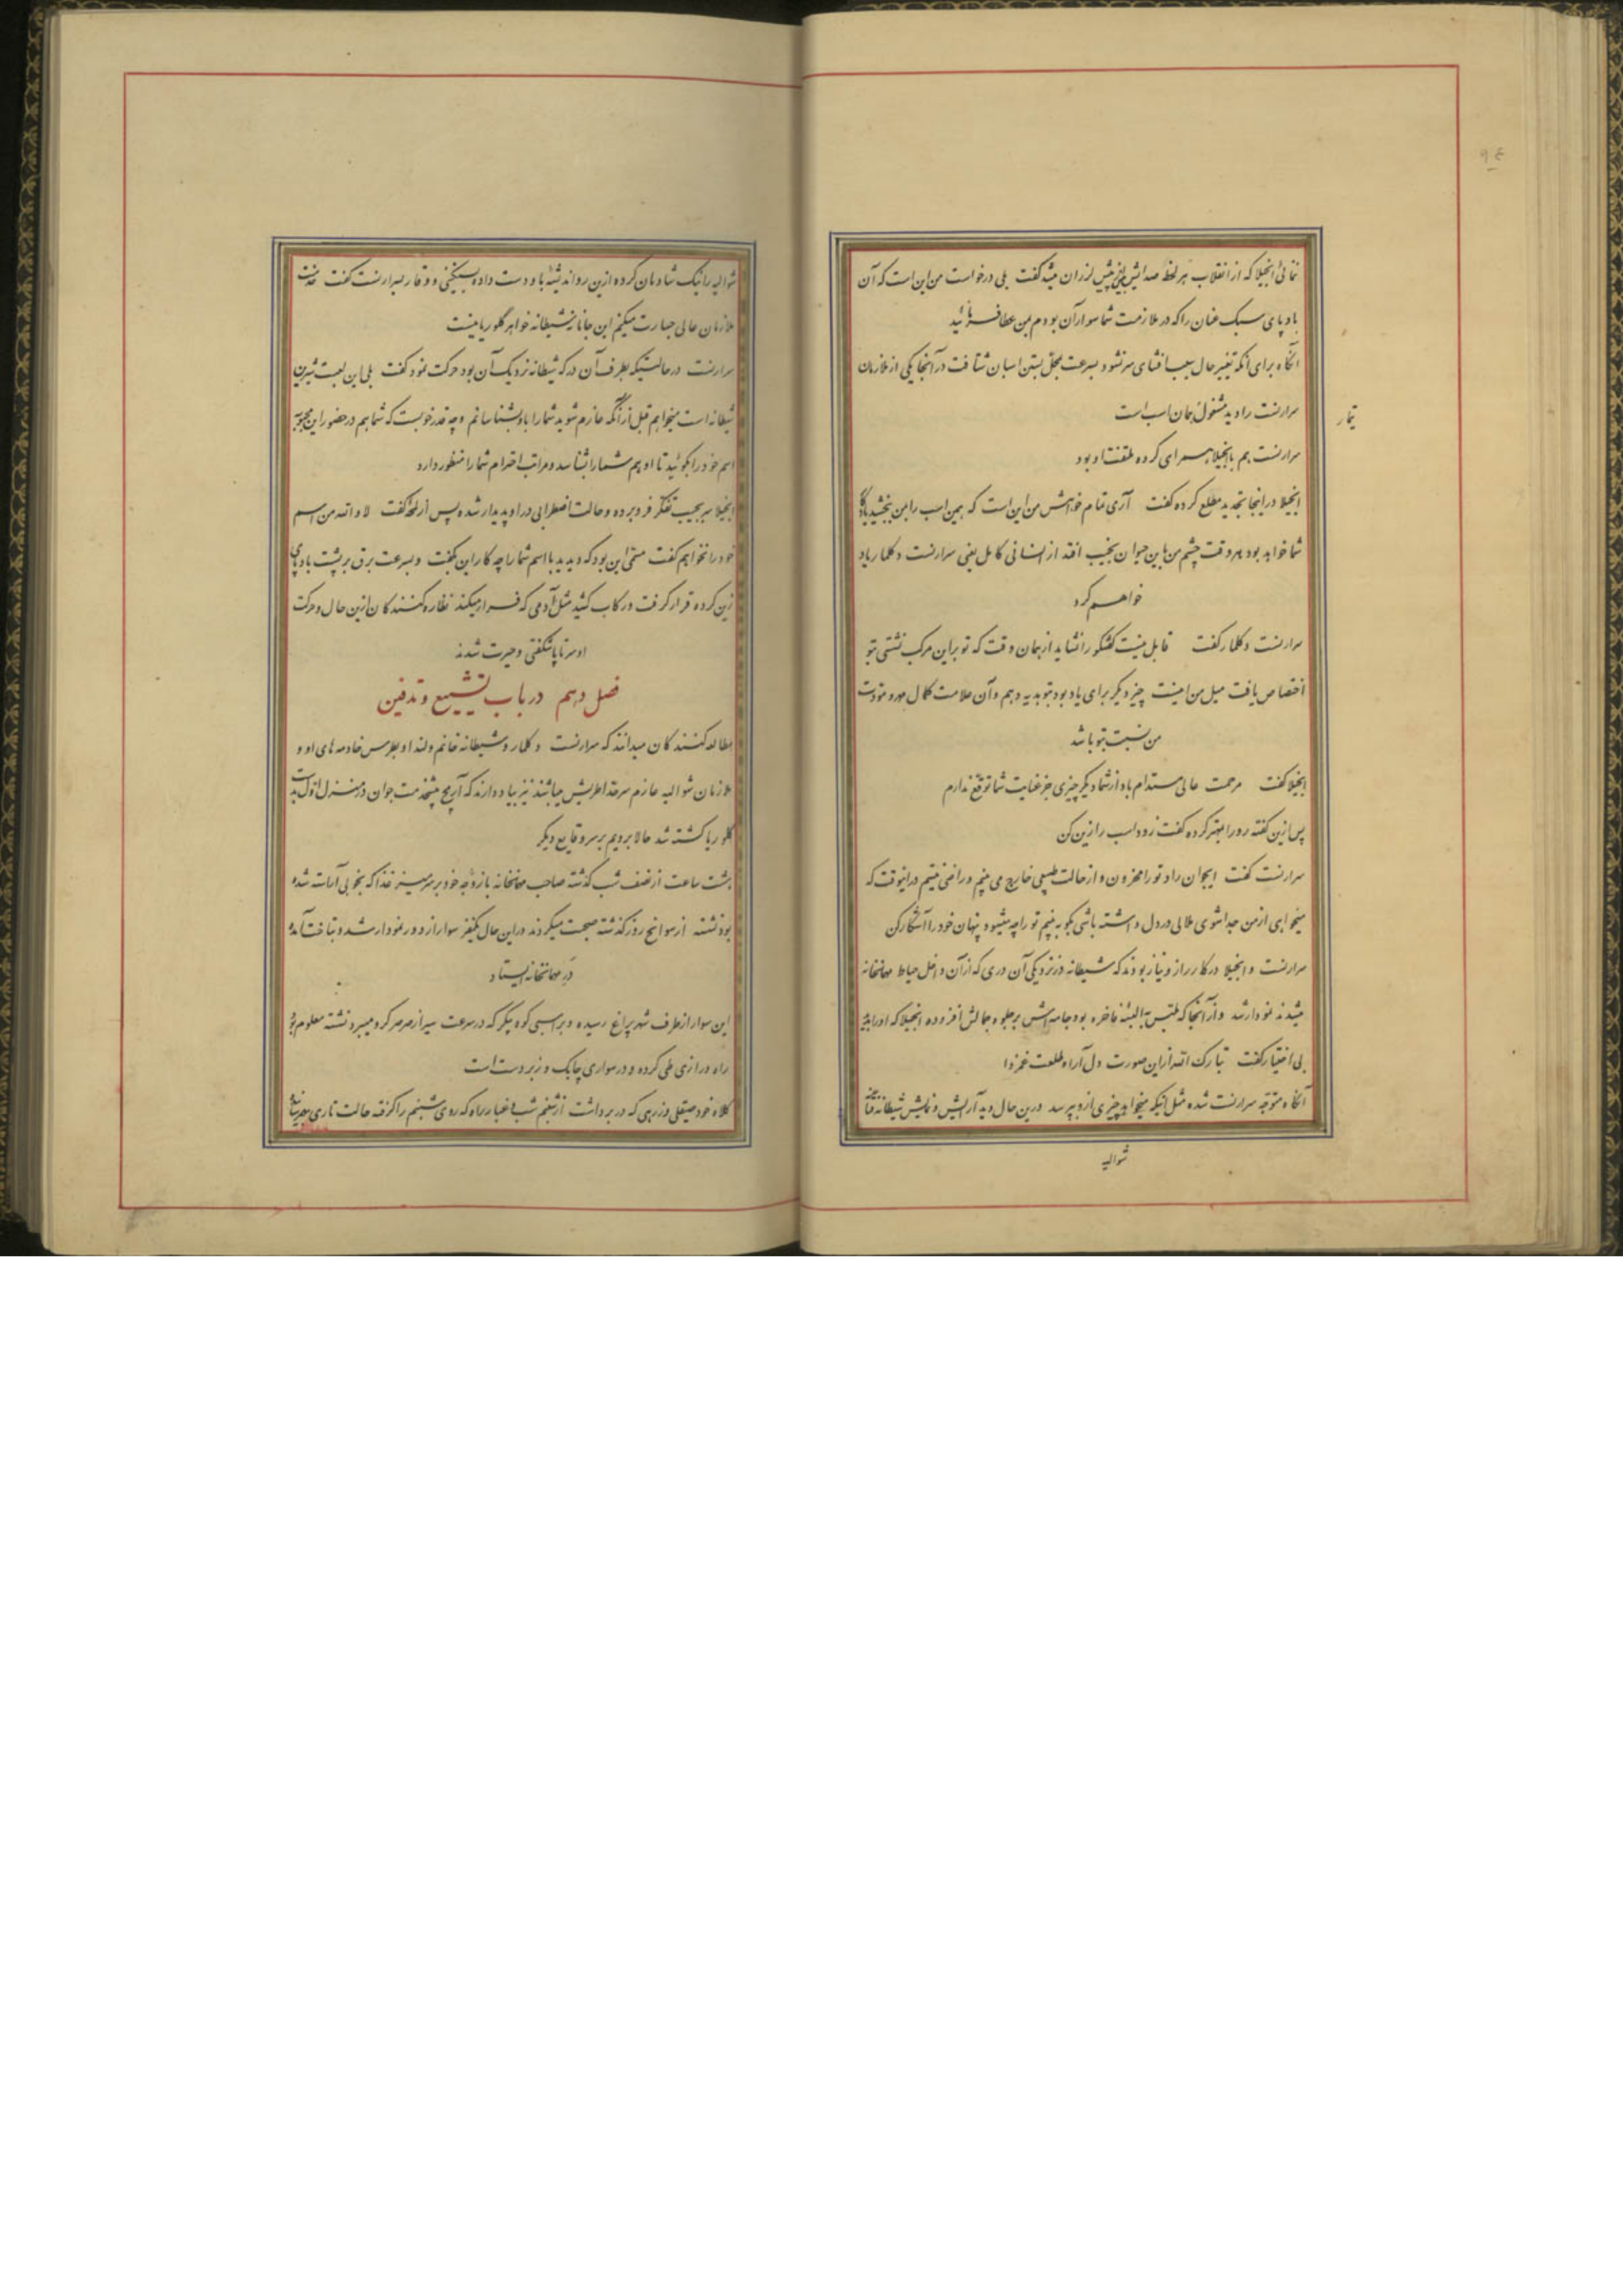 ۹۴
نمائی انجیلا که از انقلاب هر لحظه صدایش لرزان میشد گفت بلی درخواست من این است که آن
باد پای سبک عنان را که در ملازمت شما سوار آن بودم بمن عطا فرمائید
آنگاه برای آنکه تغییر حال سبب افشای سر نشود بسرعت بمحل بستن اسبان شتافت در آنجا یکی از ملازمان
سرارنست را دید مشغول همان اسب است
تیمار
سرارنست هم با انجیلا همسرای کرده ملتفت او بود
انجیلا در اینجا تجدید مطلع کرده گفت آری تمام خواهش من این است که همین اسب را بمن بخشید یادگار
شما خواهد بود هر وقت چشم من باین حیوان نجیب افتد از انسانی کامل یعنی سرارنست دکلمار یاد
خواهم کرد
سرارنست دکلمار گفت قابل نیست گفتگو را نشاید از همان وقت که تو براین مرکب نشستی بتو
اختصاص یافت میل من اینست چیز دیگر برای یادبود بتو هدیه دهم و آن علامت کمال مهر و مودت
من نسبت بتو باشد
انجیلا گفت مرحمت عالی مستدام باد از شما دیگر چیزی جز عنایت شما توقع ندارم
پس ازین گفته رو را بمهتر کرده گفت زود اسب را زین کن
سرارنست گفت ایجوان راد تو را محزون و از حالت طبیعی خارج می بینم و راضی نیستم در اینوقت که
میخواهی از من جدا شوی ملالی در دل داشته باشی بگو ببینم تو را چه میشود پنهان خود را آشکار کن
سرارنست و انجیلا در کار راز و نیاز بودند که شیطانه در نزدیکی آن دری که از آن داخل حیاط مهمانخانه
میشدند نمودار شد و از آنجا که ملتبس بالبسه فاخره بود و جامه اش بر جلوه جمالش افزوده انجیلا که او را دید
بی اختیار گفت تبارک الله از این صورت دل آرا و طلعت غمزدا
آنگاه متوجه سرارنست شده مثل اینکه میخواهد چیزی از و بپرسد درین حال دید آرایش و نمایش شیطانه
شوالیه
شوالیه را نیک شادمان کرده ازین رو اندیشه باو دست داده بسنگینی و وقار بسرارنست گفت خدمت
ملازمان عالی جسارت میکنم این جانانه شیطانه خواهر گلوریا نیست
سرارنست در حالتیکه بطرف آن در که شیطانه نزدیک آن بود حرکت نمود گفت بلی این لعبت شیرین
شیطانه است میخواهم قبل از آنکه عازم شوید شما را باو بشناسانم و چه قدر خوبست که شما هم در حضور این محبوبه
اسم خود را بگوئید تا او هم شما را بشناسد و مراتب احترام شما را منظور دارد
انجیلا سر بجیب تفکر فرو برده و حالت اضطرابی در او پدیدار شده پس از لحظه گفت لا والله من اسم
خود را نخواهم گفت مستحی این بود که دیدید با اسم شما را چه کار این بگفت و بسرعت برق بر پشت باد پای
زین کرده قرار گرفت و رکاب کشید مثل آدمی که فرار میکند نظاره کنندگان ازین حال و حرکت
او سر تا پا شگفتی و حیرت شدند
فصل دهم در باب تشییع و تدفین
مطالعه کنندگان میدانند که سرارنست دکلمار و شیطانه خانم و لندا و بطرس خادمه های او و
ملازمان شوالیه عازم سرحد اطریش میباشند نیز بیاد دارند که آریج پیشخدمت جوان در منزل اول بدست
گلوریا کشته شد حالا برویم بر سر وقایع دیگر
هشت ساعت از نصف شب گذشته صاحب مهمانخانه با زوجه خود بر سر میز غذا که بخوبی آراسته شده
بود نشسته از سوانح روز گذشته صحبت میکردند در این حال یکنفر سوار از دور نمودار شد و بتاخت آمده
در مهمانخانه ایستاد
این سوار از طرف شهر پراغ رسیده و بر اسبی کوه پیکر که در سرعت سیر از صرصر گرو میبرد نشسته معلوم بود
راه درازی طی کرده و در سواری چابک و زبردست است
کلاه خود صیقلی و زرهی که در برداشت از شبنم شب و غبار راه که روی شبنم را گرفته حالت تاری